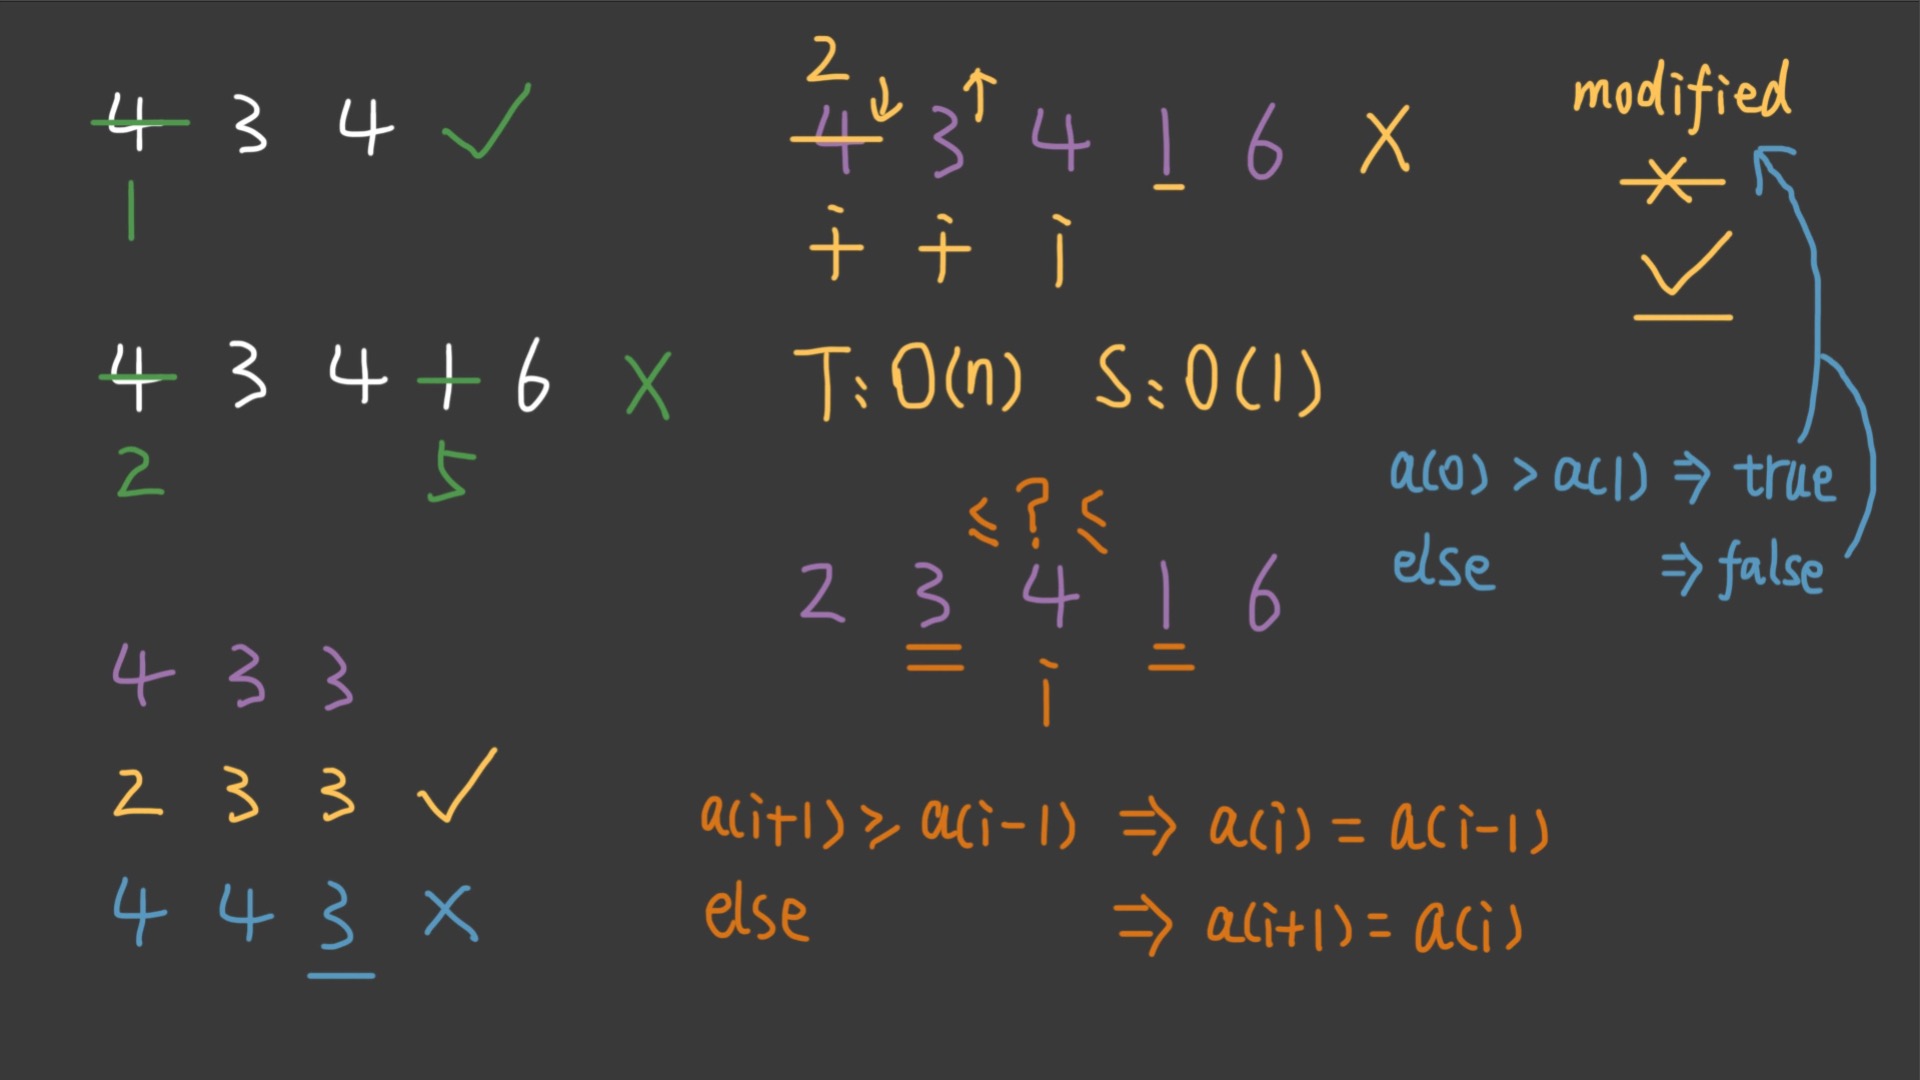 4 3 4 ✓
1
4 3 4 1 6 X
2 5
4 3 3
2 3 3 ✓
4 4 3 X
2
4 ↓ 3 ↑ 4 1 6 X
i i i
T: O(n) S: O(1)
≤ ? ≤
2 3 4 1 6
i
a(i+1) ≥ a(i-1) ⇒ a(i) = a(i-1)
else ⇒ a(i+1) = a(i)
modified
X
✓
a(0) > a(1) ⇒ true
else ⇒ false